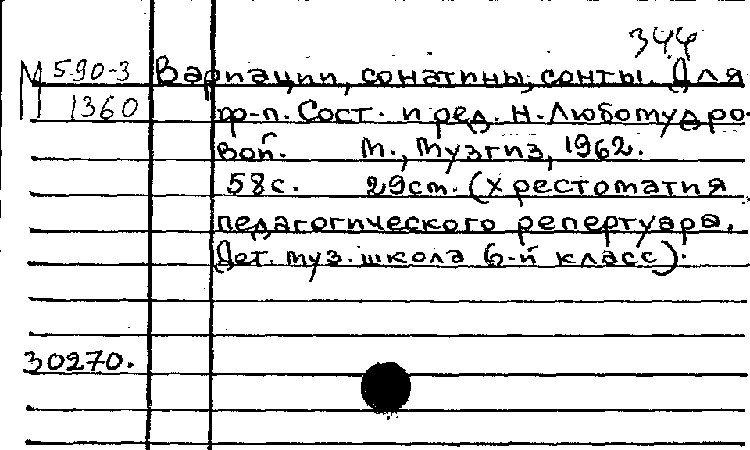 344
М 590-3 Вариации, сонатины, сонты. Для
1360 ф-п. Сост. и ред. Н. Любомудро-
вой. М., Музгиз, 1962.
58с. 29см. (Хрестоматия
педагогического репертуара.
Дет. муз. школа 6-й класс).
30270.